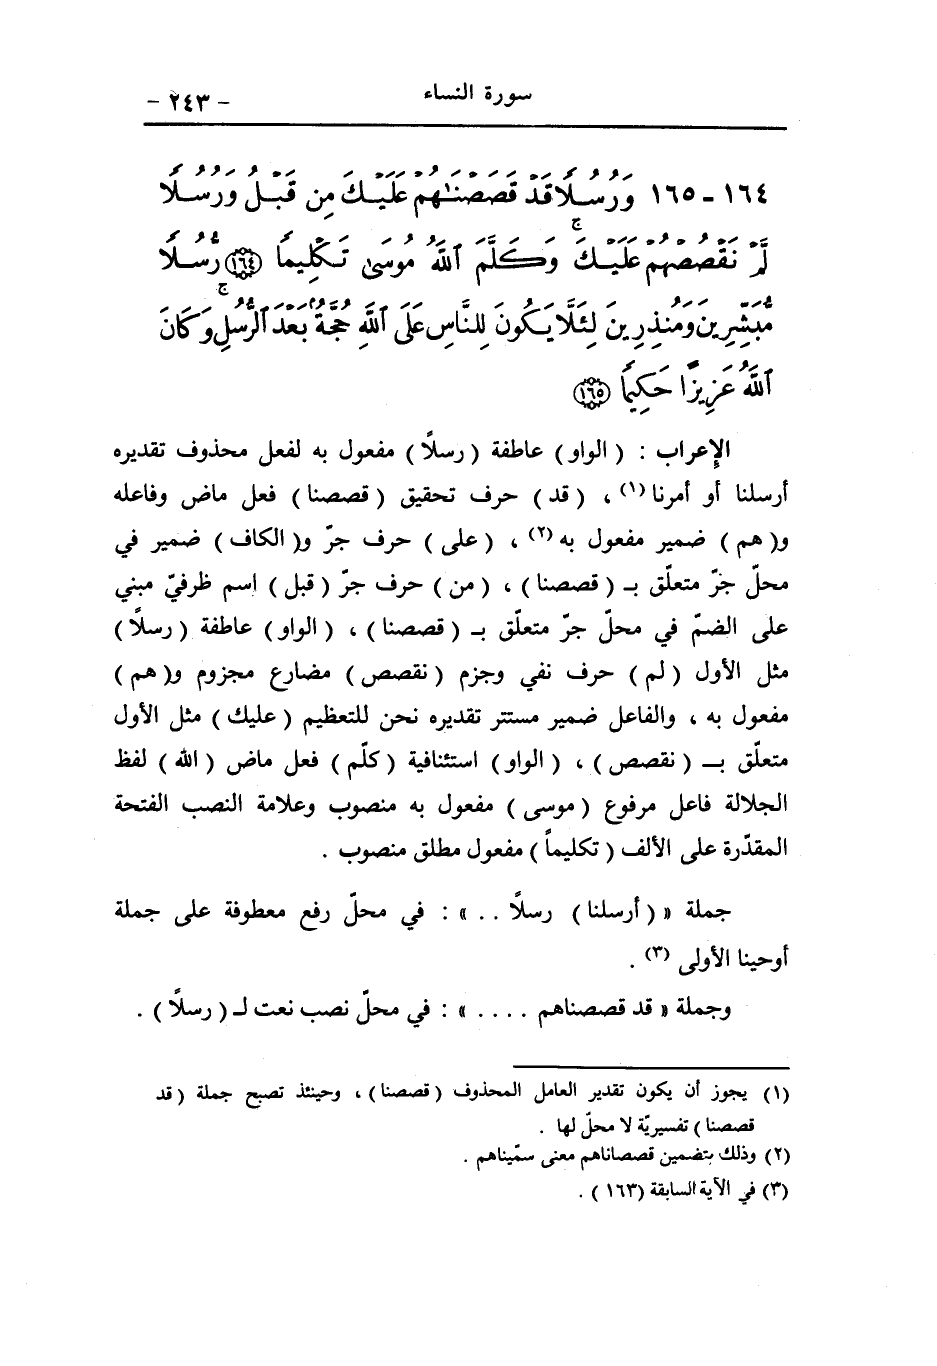 سورة النساء
- ٢٤٣ -
١٦٤ - ١٦٥ وَرُسُلًا قَدْ قَصَصْنَٰهُمْ عَلَيْكَ مِن قَبْلُ وَرُسُلًا
لَّمْ نَقْصُصْهُمْ عَلَيْكَ ۚ وَكَلَّمَ ٱللَّهُ مُوسَىٰ تَكْلِيمًا ﴿١٦٤﴾ رُّسُلًا
مُّبَشِّرِينَ وَمُنذِرِينَ لِئَلَّا يَكُونَ لِلنَّاسِ عَلَى ٱللَّهِ حُجَّةٌۢ بَعْدَ ٱلرُّسُلِ ۚ وَكَانَ
ٱللَّهُ عَزِيزًا حَكِيمًا ﴿١٦٥﴾
الإعراب : ( الواو ) عاطفة ( رسلاً ) مفعول به لفعل محذوف تقديره
أرسلنا أو أمرنا (١) ، ( قد ) حرف تحقيق ( قصصنا ) فعل ماض وفاعله
و( هم ) ضمير مفعول به (٢) ، ( على ) حرف جرّ و( الكاف ) ضمير في
محلّ جرّ متعلّق بـ ( قصصنا ) ، ( من ) حرف جرّ ( قبل ) اسم ظرفيّ مبني
على الضمّ في محلّ جرّ متعلّق بـ ( قصصنا ) ، ( الواو ) عاطفة ( رسلاً )
مثل الأول ( لم ) حرف نفي وجزم ( نقصص ) مضارع مجزوم و( هم )
مفعول به ، والفاعل ضمير مستتر تقديره نحن للتعظيم ( عليك ) مثل الأول
متعلّق بـــ ( نقصص ) ، ( الواو ) استئنافية ( كلّم ) فعل ماض ( الله ) لفظ
الجلالة فاعل مرفوع ( موسى ) مفعول به منصوب وعلامة النصب الفتحة
المقدّرة على الألف ( تكليماً ) مفعول مطلق منصوب .
جملة « ( أرسلنا ) رسلاً . . » : في محلّ رفع معطوفة على جملة
أوحينا الأولى (٣) .
وجملة « قد قصصناهم . . . . » : في محلّ نصب نعت لـ ( رسلاً ) .
(١) يجوز أن يكون تقدير العامل المحذوف ( قصصنا ) ، وحينئذ تصبح جملة ( قد
قصصنا ) تفسيريّة لا محلّ لها .
(٢) وذلك بتضمين قصصاناهم معنى سمّيناهم .
(٣) في الآية السابقة (١٦٣ ) .